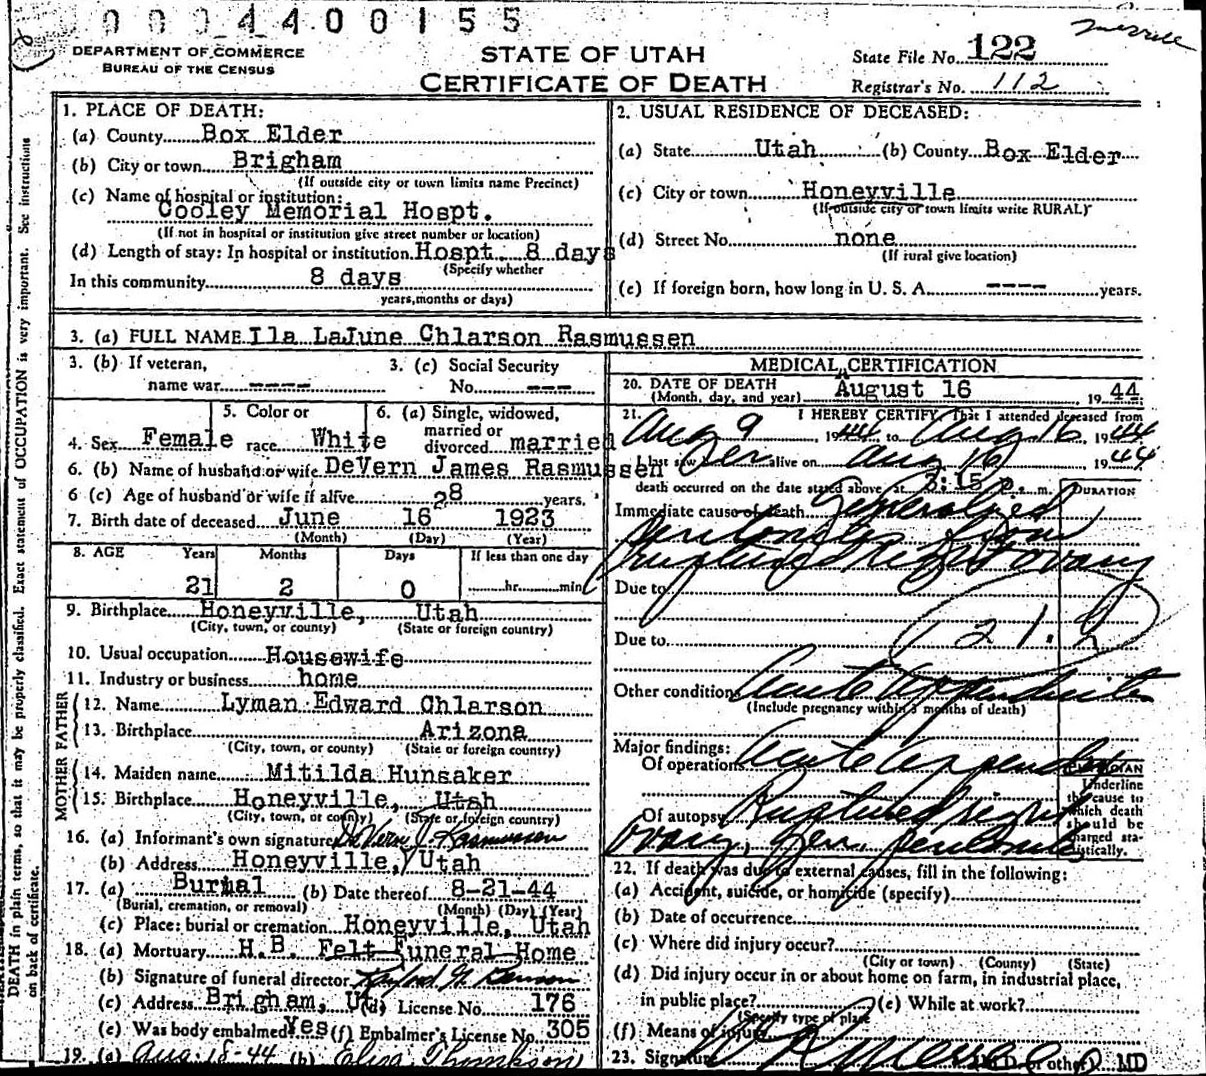 0004400155
DEPARTMENT OF COMMERCE
BUREAU OF THE CENSUS
STATE OF UTAH
CERTIFICATE OF DEATH
State File No. 122
Registrar's No. 112
Merrill
DEATH in plain terms, so that it may be properly classified. Exact statement of OCCUPATION is very important. See instructions
on back of certificate.
1. PLACE OF DEATH:
(a) County Box Elder
(b) City or town Brigham
(If outside city or town limits name Precinct)
(c) Name of hospital or institution:
Cooley Memorial Hospt.
(If not in hospital or institution give street number or location)
(d) Length of stay: In hospital or institution Hospt. 8 days
(Specify whether
In this community 8 days
years, months or days)
2. USUAL RESIDENCE OF DECEASED:
(a) State Utah (b) County Box Elder
(c) City or town Honeyville
(If outside city or town limits write RURAL)
(d) Street No. none
(If rural give location)
(e) If foreign born, how long in U. S. A. ---- years.
3. (a) FULL NAME Ila LaJune Chlarson Rasmussen
3. (b) If veteran,
name war ----
3. (c) Social Security
No. ---
4. Sex Female
5. Color or
race White
6. (a) Single, widowed,
married or
divorced married
6. (b) Name of husband or wife DeVern James Rasmussen
6 (c) Age of husband or wife if alive 28 years.
7. Birth date of deceased June 16 1923
(Month) (Day) (Year)
8. AGE Years Months Days If less than one day
21 2 0 hr. min.
9. Birthplace Honeyville, Utah
(City, town, or county) (State or foreign country)
10. Usual occupation Housewife
11. Industry or business home
MOTHER FATHER
12. Name Lyman Edward Chlarson
13. Birthplace Arizona
(City, town, or county) (State or foreign country)
14. Maiden name Mitilda Hunsaker
15. Birthplace Honeyville, Utah
(City, town, or county) (State or foreign country)
16. (a) Informant's own signature DeVern J. Rasmussen
(b) Address Honeyville, Utah
17. (a) Burial (b) Date thereof 8-21-44
(Burial, cremation, or removal) (Month) (Day) (Year)
(c) Place: burial or cremation Honeyville, Utah
18. (a) Mortuary H.B. Felt Funeral Home
(b) Signature of funeral director
(c) Address Brigham, Ut. (d) License No. 176
(e) Was body embalmed Yes (f) Embalmer's License No. 305
19. (a) Aug. 18-44 (b) Eliza Thompson
MEDICAL CERTIFICATION
20. DATE OF DEATH
(Month, day, and year) August 16, 1944
21. I HEREBY CERTIFY, That I attended deceased from
Aug 9, 1944 to Aug 16, 1944
I last saw her alive on Aug 16 1944
death occurred on the date stated above at 3:15 p. m.
DURATION
Immediate cause of death Generalized
peritonitis from
ruptured right ovary
Due to
Due to
Other conditions Acute Appendicitis
(Include pregnancy within 3 months of death)
Major findings:
Of operations Acute Appendix
Of autopsy Ruptured right
ovary, Gen. peritonitis
PHYSICIAN
Underline
the cause to
which death
should be
charged sta-
tistically.
22. If death was due to external causes, fill in the following:
(a) Accident, suicide, or homicide (specify)
(b) Date of occurrence
(c) Where did injury occur?
(City or town) (County) (State)
(d) Did injury occur in or about home on farm, in industrial place,
in public place? (e) While at work?
(Specify type of place
(f) Means of injury
23. Signature M.D. or other MD